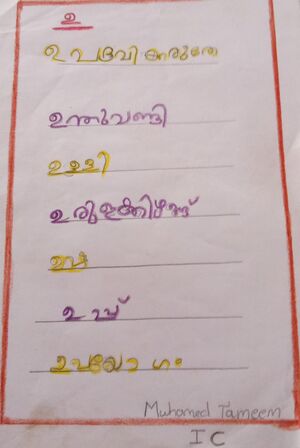 ഉ
ഉപദ്രവിക്കരുതേ
ഉന്തുവണ്ടി
ഉള്ളി
ഉരുളക്കിഴങ്ങ്
ഉഷ
ഉപ്പ്
ഉപയോഗം
Muhamed Tameem
I C